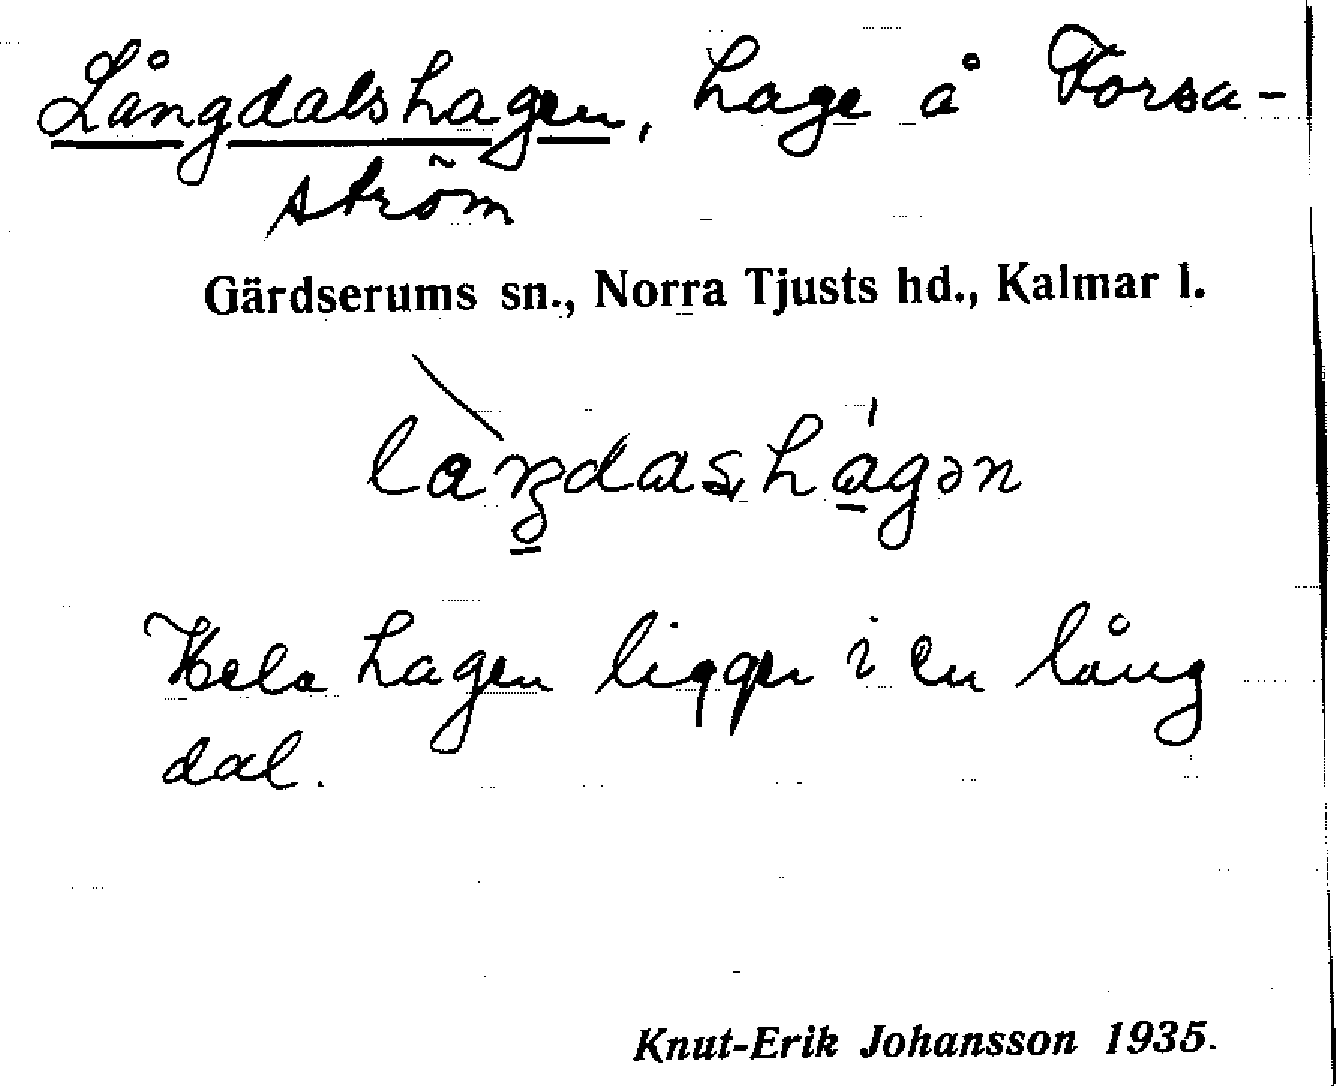 Långdalshagen, hage å Forsa-
ström
Gärdserums sn., Norra Tjusts hd., Kalmar l.
Hela hagen ligger i en lång
dal.
Knut-Erik Johansson 1935.